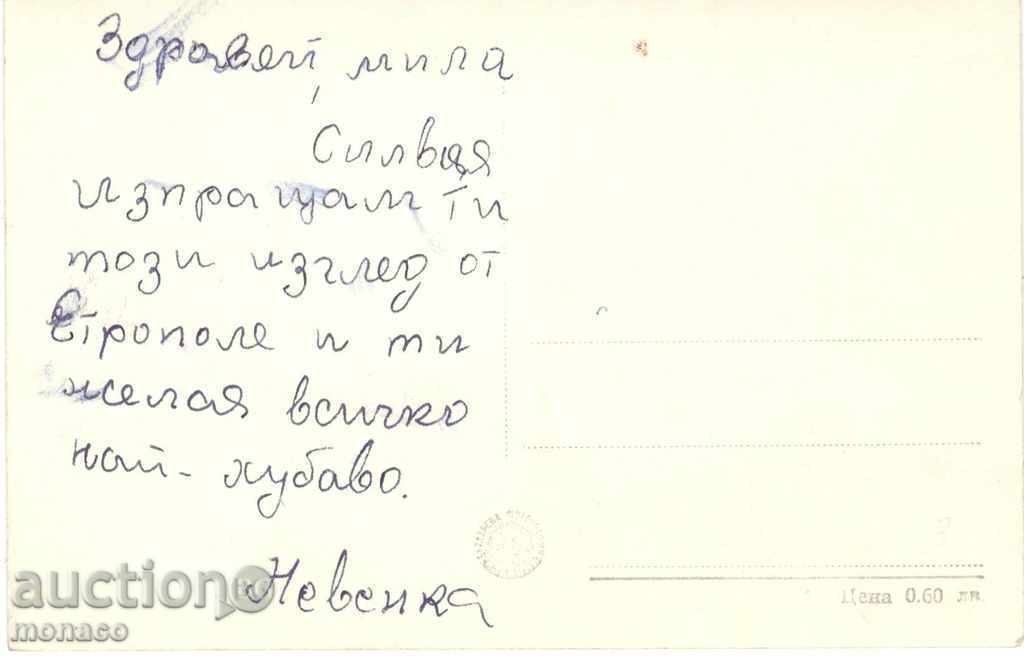 Здравей, мила
Силвия
изпращам ти
този изглед от
Етрополе и ти
желая всичко
най-хубаво.
Невенка
Цена 0.60 лв.
auction
monaco